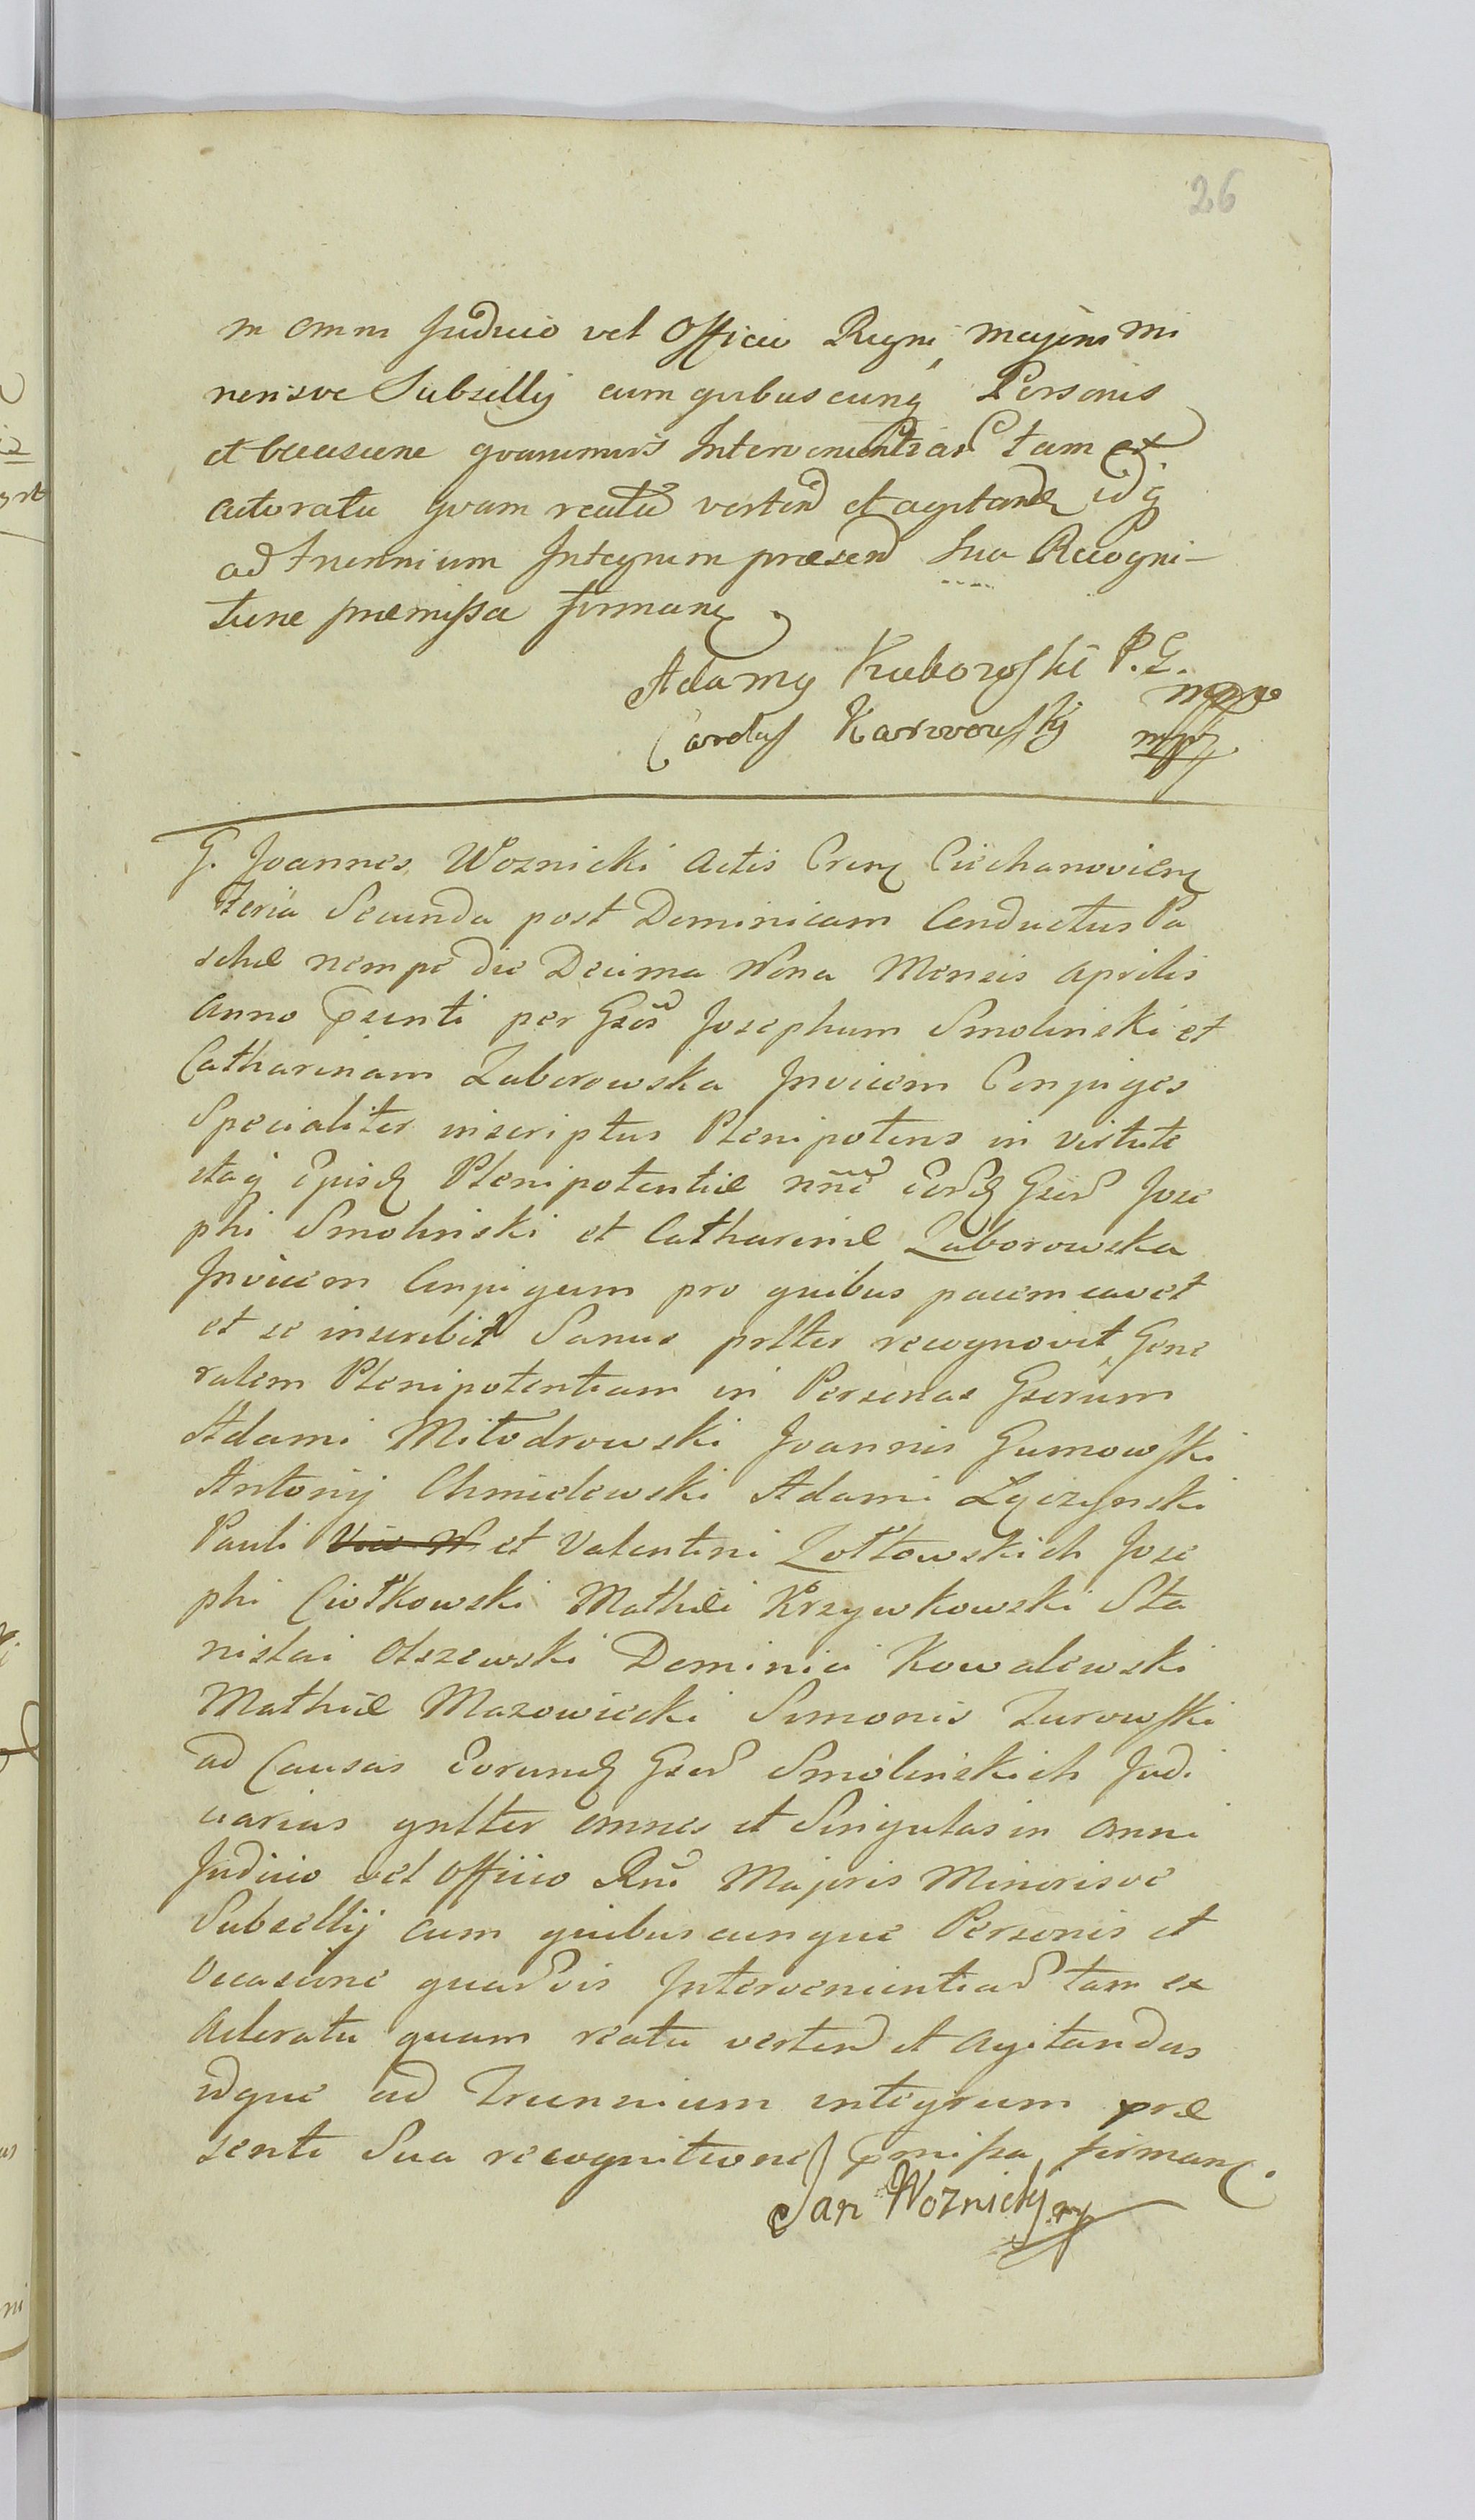 26
in omni Judicio vel Officio Regni, Majoris Mi
nerisve Subsellij cum quibuscunq Personis
et Occasione quavumvis Intervenientiar tam ex
actoratu quam reatu verten et agitand idq
ad triennium Integrum præsen sua Recogni-
tione præmissa firman
Adamg Kuborofski P.G. mpp
Carolus Karwowskj mpp
G. Joannes Woznicki Actis Cren Ciechanovien
Feria Secunda post Dominicam Conductus Pa
schæ nempe die Decima Nona Mensis Aprilis
Anno Psenti per Gsos Josephum Smolinski et
Catharinam Zaborowska Invicem Conjuges
Specialiter inscriptus Plenipotens in virtute
itaq Ejusd Plenipotentiæ nne Eord Gser Jose
phi Smolinski et Catharinæ Zaborowska
Invicem Conjugum pro quibus pacem cavet
et se inscribit Sanus pntter recognovit, Gene
ralem Plenipotentiam in Personas Gserum
Adami Milodrowski Joannis Gumowski
Antonij Chmielewski Adami Lączynski
Pauli et Valentini Zołtowskich Jose
phi Ciołkowski Mathæi Krzywkowski Sta
nislai Olszewski Dominici Kowalewski
Mathiæ Mazowiecki Simonis Zurowski
ad Causas Eorund Gser Smolinskich Judi
ciarias gnlter omnes et Singulas in omni
Judicio vel Officio Rni Majoris Minorisve
Subsellij cum quibuscunque Personis et
Occasione quarvis Intervenientiar tam ex
Actoratu quam reatu verten et Agitandas
idque ad Triennium integrum præ
senti Sua recognitione Pmissa firman.
Jan Woznickj mp